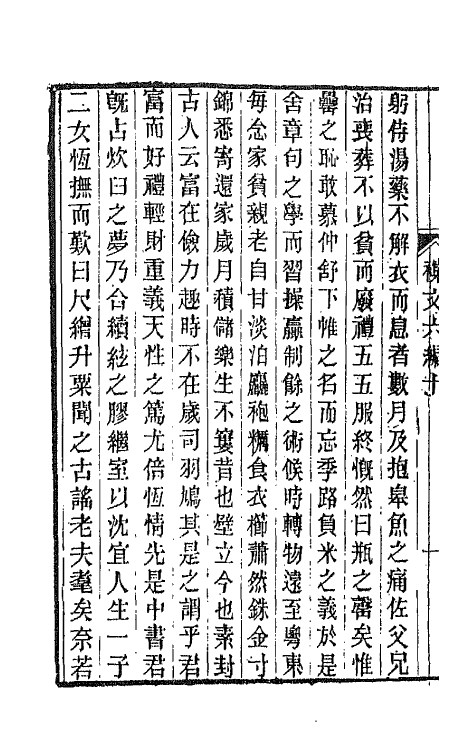 躬侍湯藥不解衣而息者數月及抱臯魚之痛佐父兄
治喪葬不以貧而廢禮五五服終慨然曰瓶之罄矣惟
罍之恥敢慕仲舒下帷之名而忘季路負米之義於是
舍章句之學而習操贏制餘之術候時轉物遠至粵東
每念家貧親老自甘淡泊麤袍糲食衣櫛蕭然銖金寸
錦悉寄還家歲月積儲樂生不窶昔也壁立今也素封
古人云富在儉力趣時不在歲司羽鳩其是之謂乎君
富而好禮輕財重義天性之篤尤倍恆情先是中書君
旣占炊臼之夢乃合續絃之膠繼室以沈宜人生一子
二女恆撫而歎曰尺繒升粟聞之古謠老夫耄矣奈若
文六編十
一